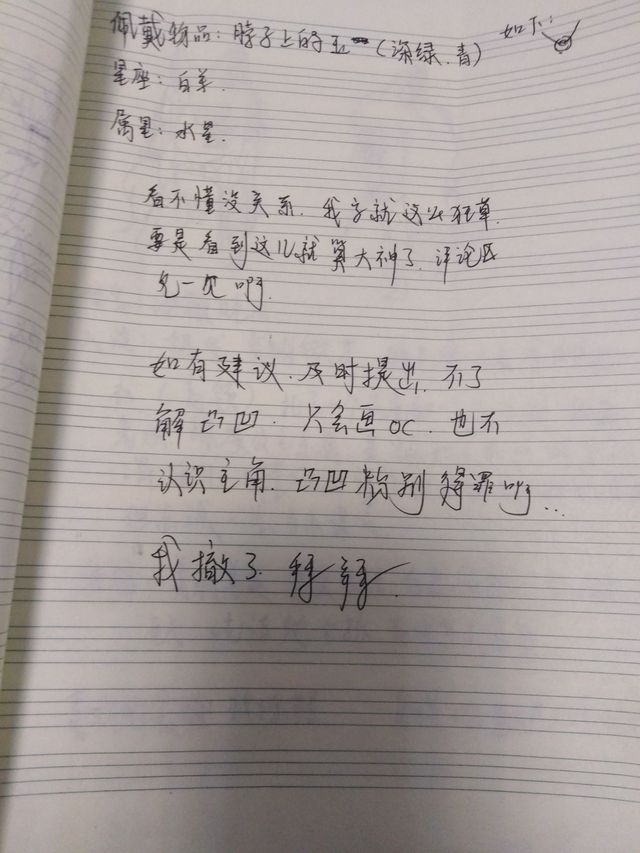 佩戴物品：脖子上的玉（深绿.青） 如下：
星座：白羊.
属星：水星.
看不懂没关系.我字就这么狂草.
要是看到这儿就算大神了.评论区
见一见啊.
如有建议.及时提出.不了
解凸凹.只会画oc.也不
认识主角.凸凹粉别得罪啊...
我撤了.拜拜.